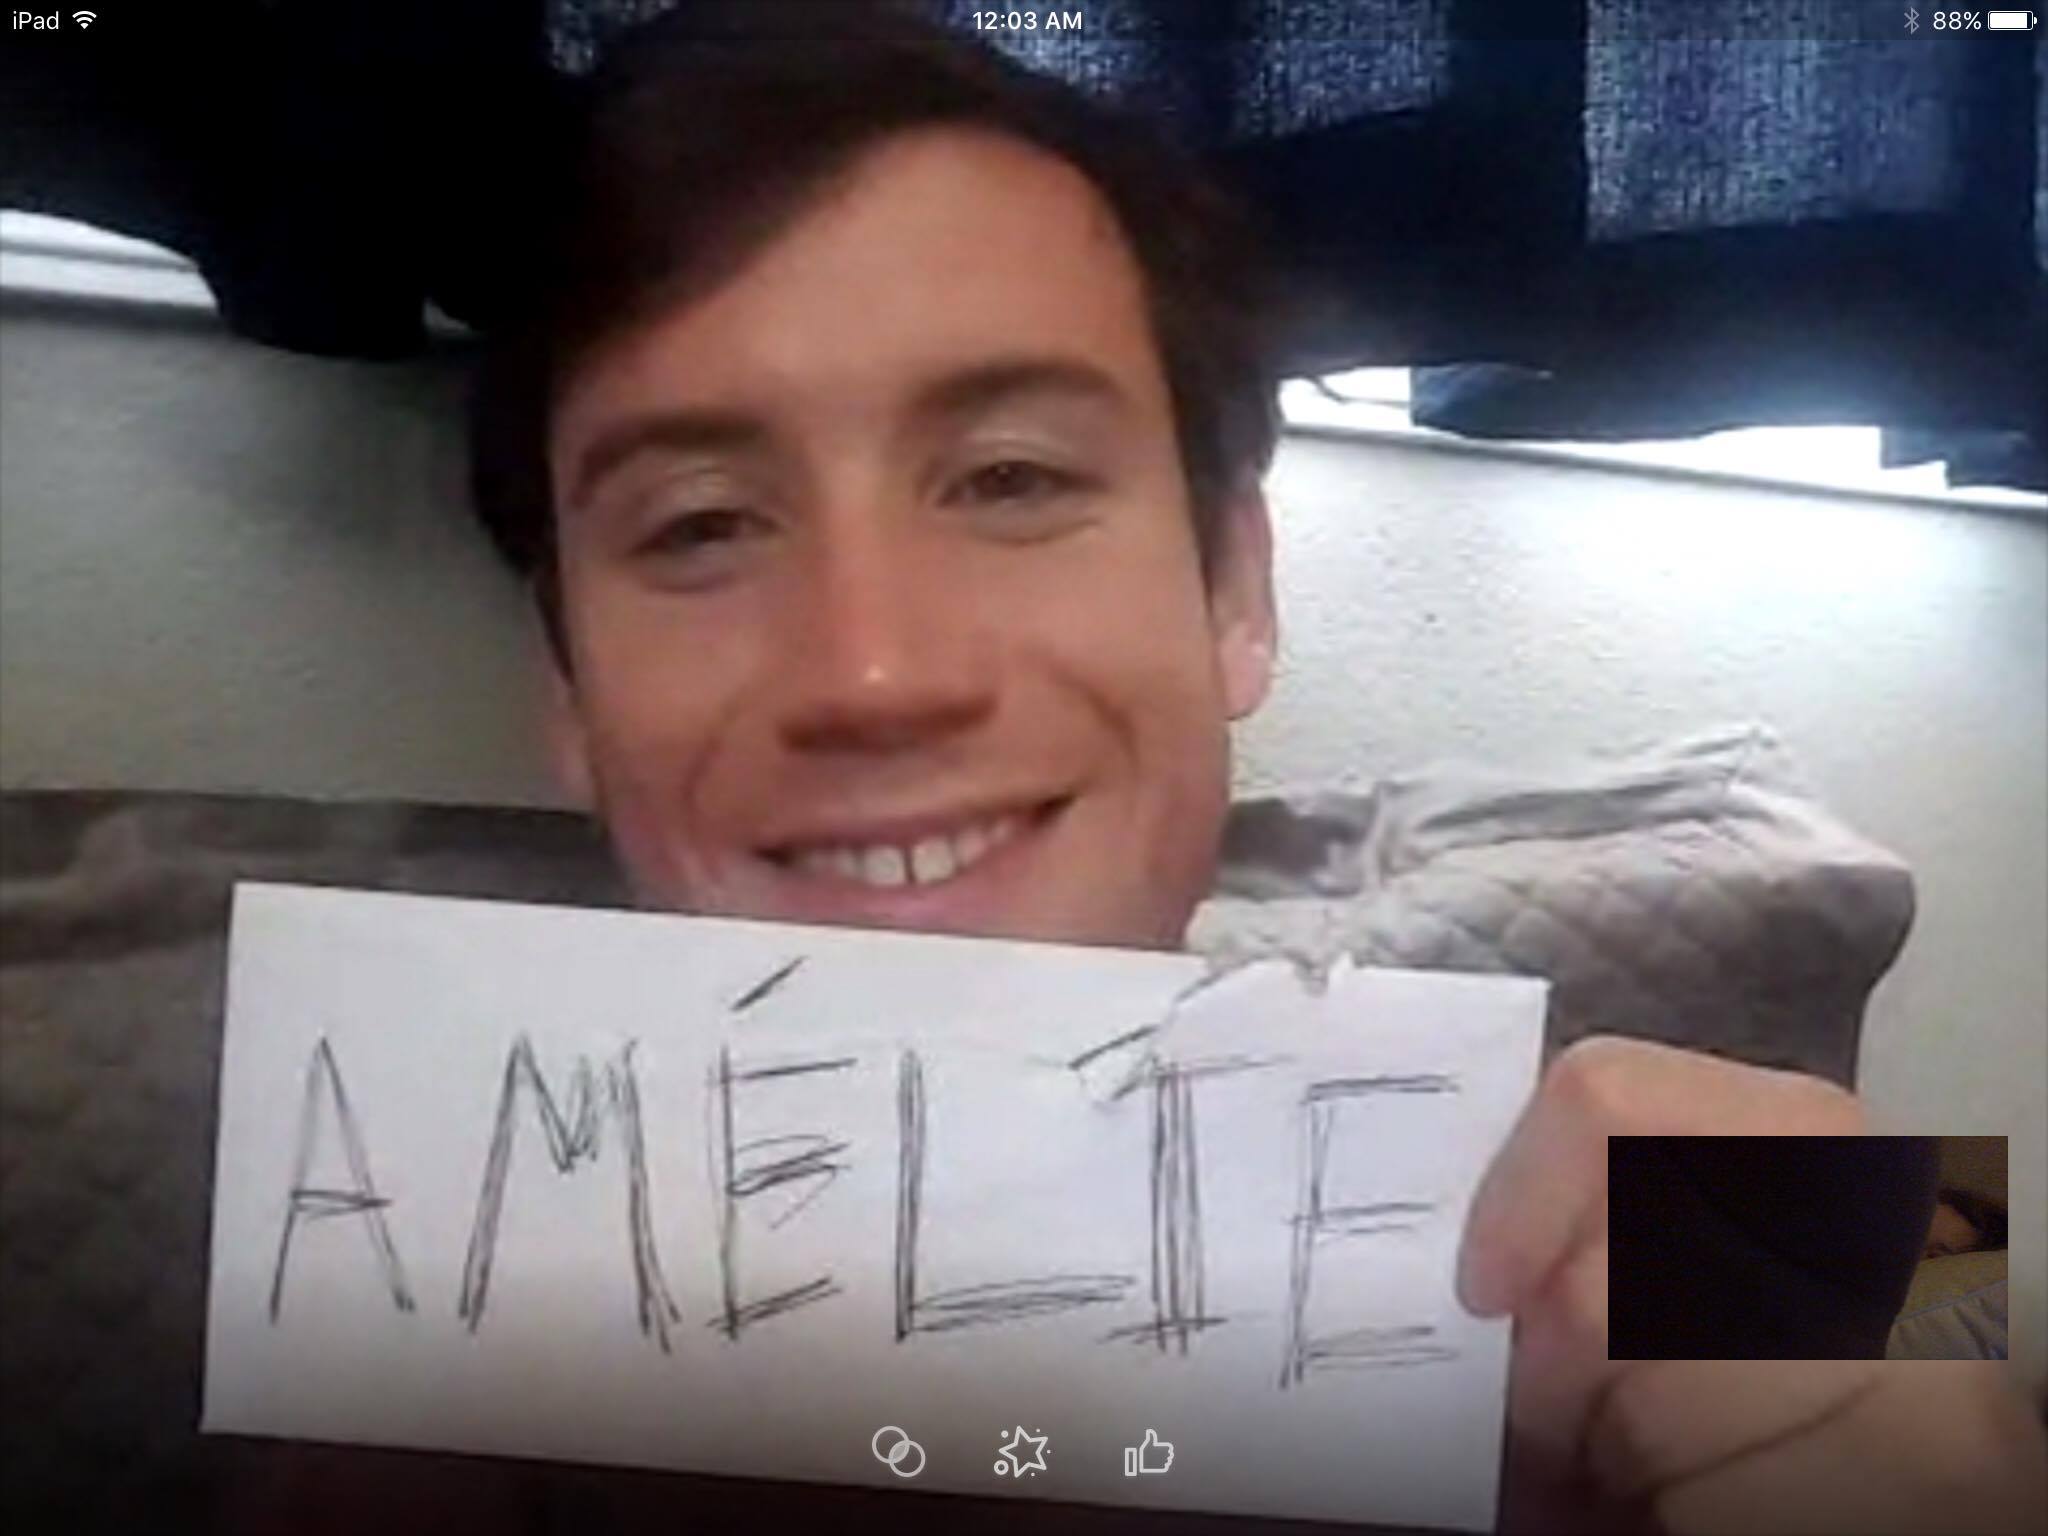 iPad 12:03 AM 88%
AMÉLIE